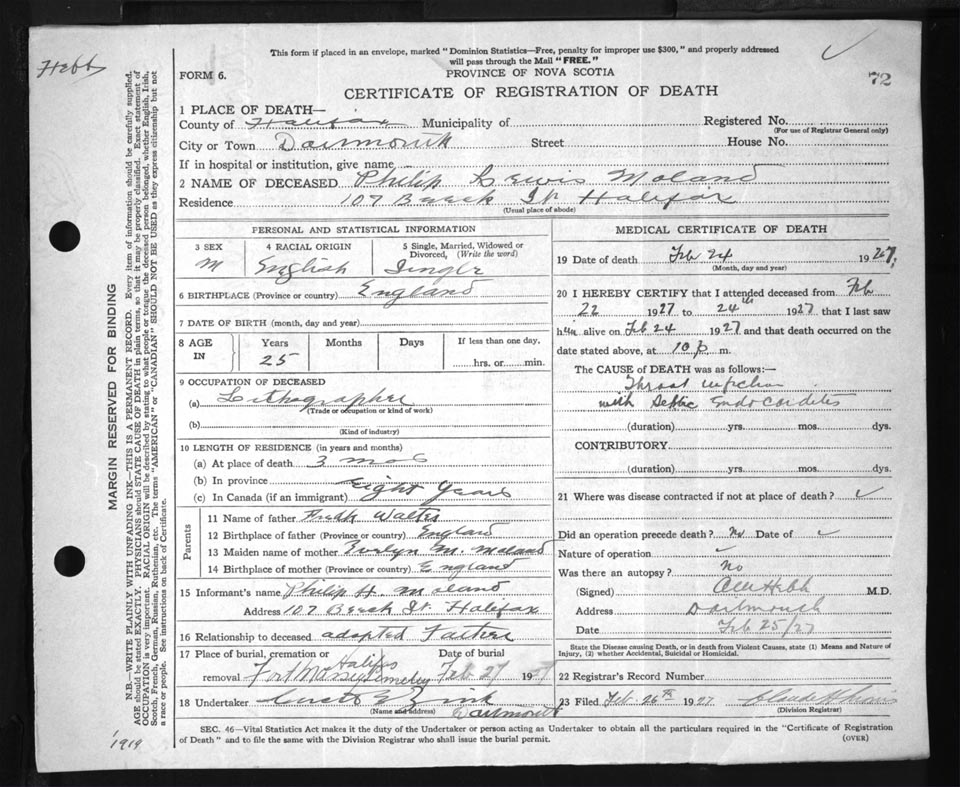 This form if placed in an envelope, marked "Dominion Statistics—Free, penalty for improper use $300," and properly addressed
will pass through the Mail "FREE."
Hebb
FORM 6.
PROVINCE OF NOVA SCOTIA
72
CERTIFICATE OF REGISTRATION OF DEATH
1 PLACE OF DEATH—
County of Halifax Municipality of Registered No.
(For use of Registrar General only)
City or Town Dartmouth Street House No.
If in hospital or institution, give name
2 NAME OF DECEASED Philip Lewis Moland
Residence 107 Beech St. Halifax
(Usual place of abode)
MARGIN RESERVED FOR BINDING
N.B.—WRITE PLAINLY WITH UNFADING INK—THIS IS A PERMANENT RECORD. Every item of information should be carefully supplied.
AGE should be stated EXACTLY. PHYSICIANS should STATE CAUSE OF DEATH in plain terms, so that it may be properly classified. Exact statement of
OCCUPATION is very important. RACIAL ORIGIN will be described by stating to what people or tongue the deceased person belonged, whether English, Irish,
Scotch, French, German, Russian, Ruthenian, etc. The terms "AMERICAN" or "CANADIAN" SHOULD NOT BE USED as they express citizenship but not
a race or people. See instructions on back of Certificate.
PERSONAL AND STATISTICAL INFORMATION
3 SEX
M
4 RACIAL ORIGIN
English
5 Single, Married, Widowed or
Divorced, (Write the word)
Single
6 BIRTHPLACE (Province or country) England
7 DATE OF BIRTH (month, day and year)
8 AGE
IN
Years
25
Months
Days
If less than one day,
hrs. or min.
9 OCCUPATION OF DECEASED
(a) Lithographer
(Trade or occupation or kind of work)
(b)
(Kind of industry)
10 LENGTH OF RESIDENCE (in years and months)
(a) At place of death 3 mos
(b) In province Eight Years
(c) In Canada (if an immigrant)
Parents
11 Name of father Fredk Walter
12 Birthplace of father (Province or country) England
13 Maiden name of mother Evelyn M. Moland
14 Birthplace of mother (Province or country) England
15 Informant's name Philip H. Moland
Address 107 Beech St. Halifax
16 Relationship to deceased adopted Father
17 Place of burial, cremation or Date of burial
Halifax
removal Fort Massey Cemetery Feb 27 1927
18 Undertaker Zink
(Name and address) Dartmouth
MEDICAL CERTIFICATE OF DEATH
19 Date of death Feb 24 1927,
(Month, day and year)
20 I HEREBY CERTIFY that I attended deceased from Feb
22 1927 to 24th 1927 that I last saw
him alive on Feb 24 1927 and that death occurred on
date stated above, at 10 p. m.
The CAUSE of DEATH was as follows:—
Throat infection
with Septic Endocarditis
(duration) yrs. mos. dys.
CONTRIBUTORY.
(duration) yrs. mos. dys.
21 Where was disease contracted if not at place of death?
Did an operation precede death? No Date of
Nature of operation
Was there an autopsy? No
(Signed) Hebb M.D.
Address Dartmouth
Date Feb 25/27
State the Disease causing Death, or in death from Violent Causes, state (1) Means and Nature of
Injury, (2) whether Accidental, Suicidal or Homicidal.
22 Registrar's Record Number
23 Filed Feb 26th 1927
(Division Registrar)
SEC. 46—Vital Statistics Act makes it the duty of the Undertaker or person acting as Undertaker to obtain all the particulars required in the "Certificate of Registration
of Death" and to file the same with the Division Registrar who shall issue the burial permit.
(OVER)
1919